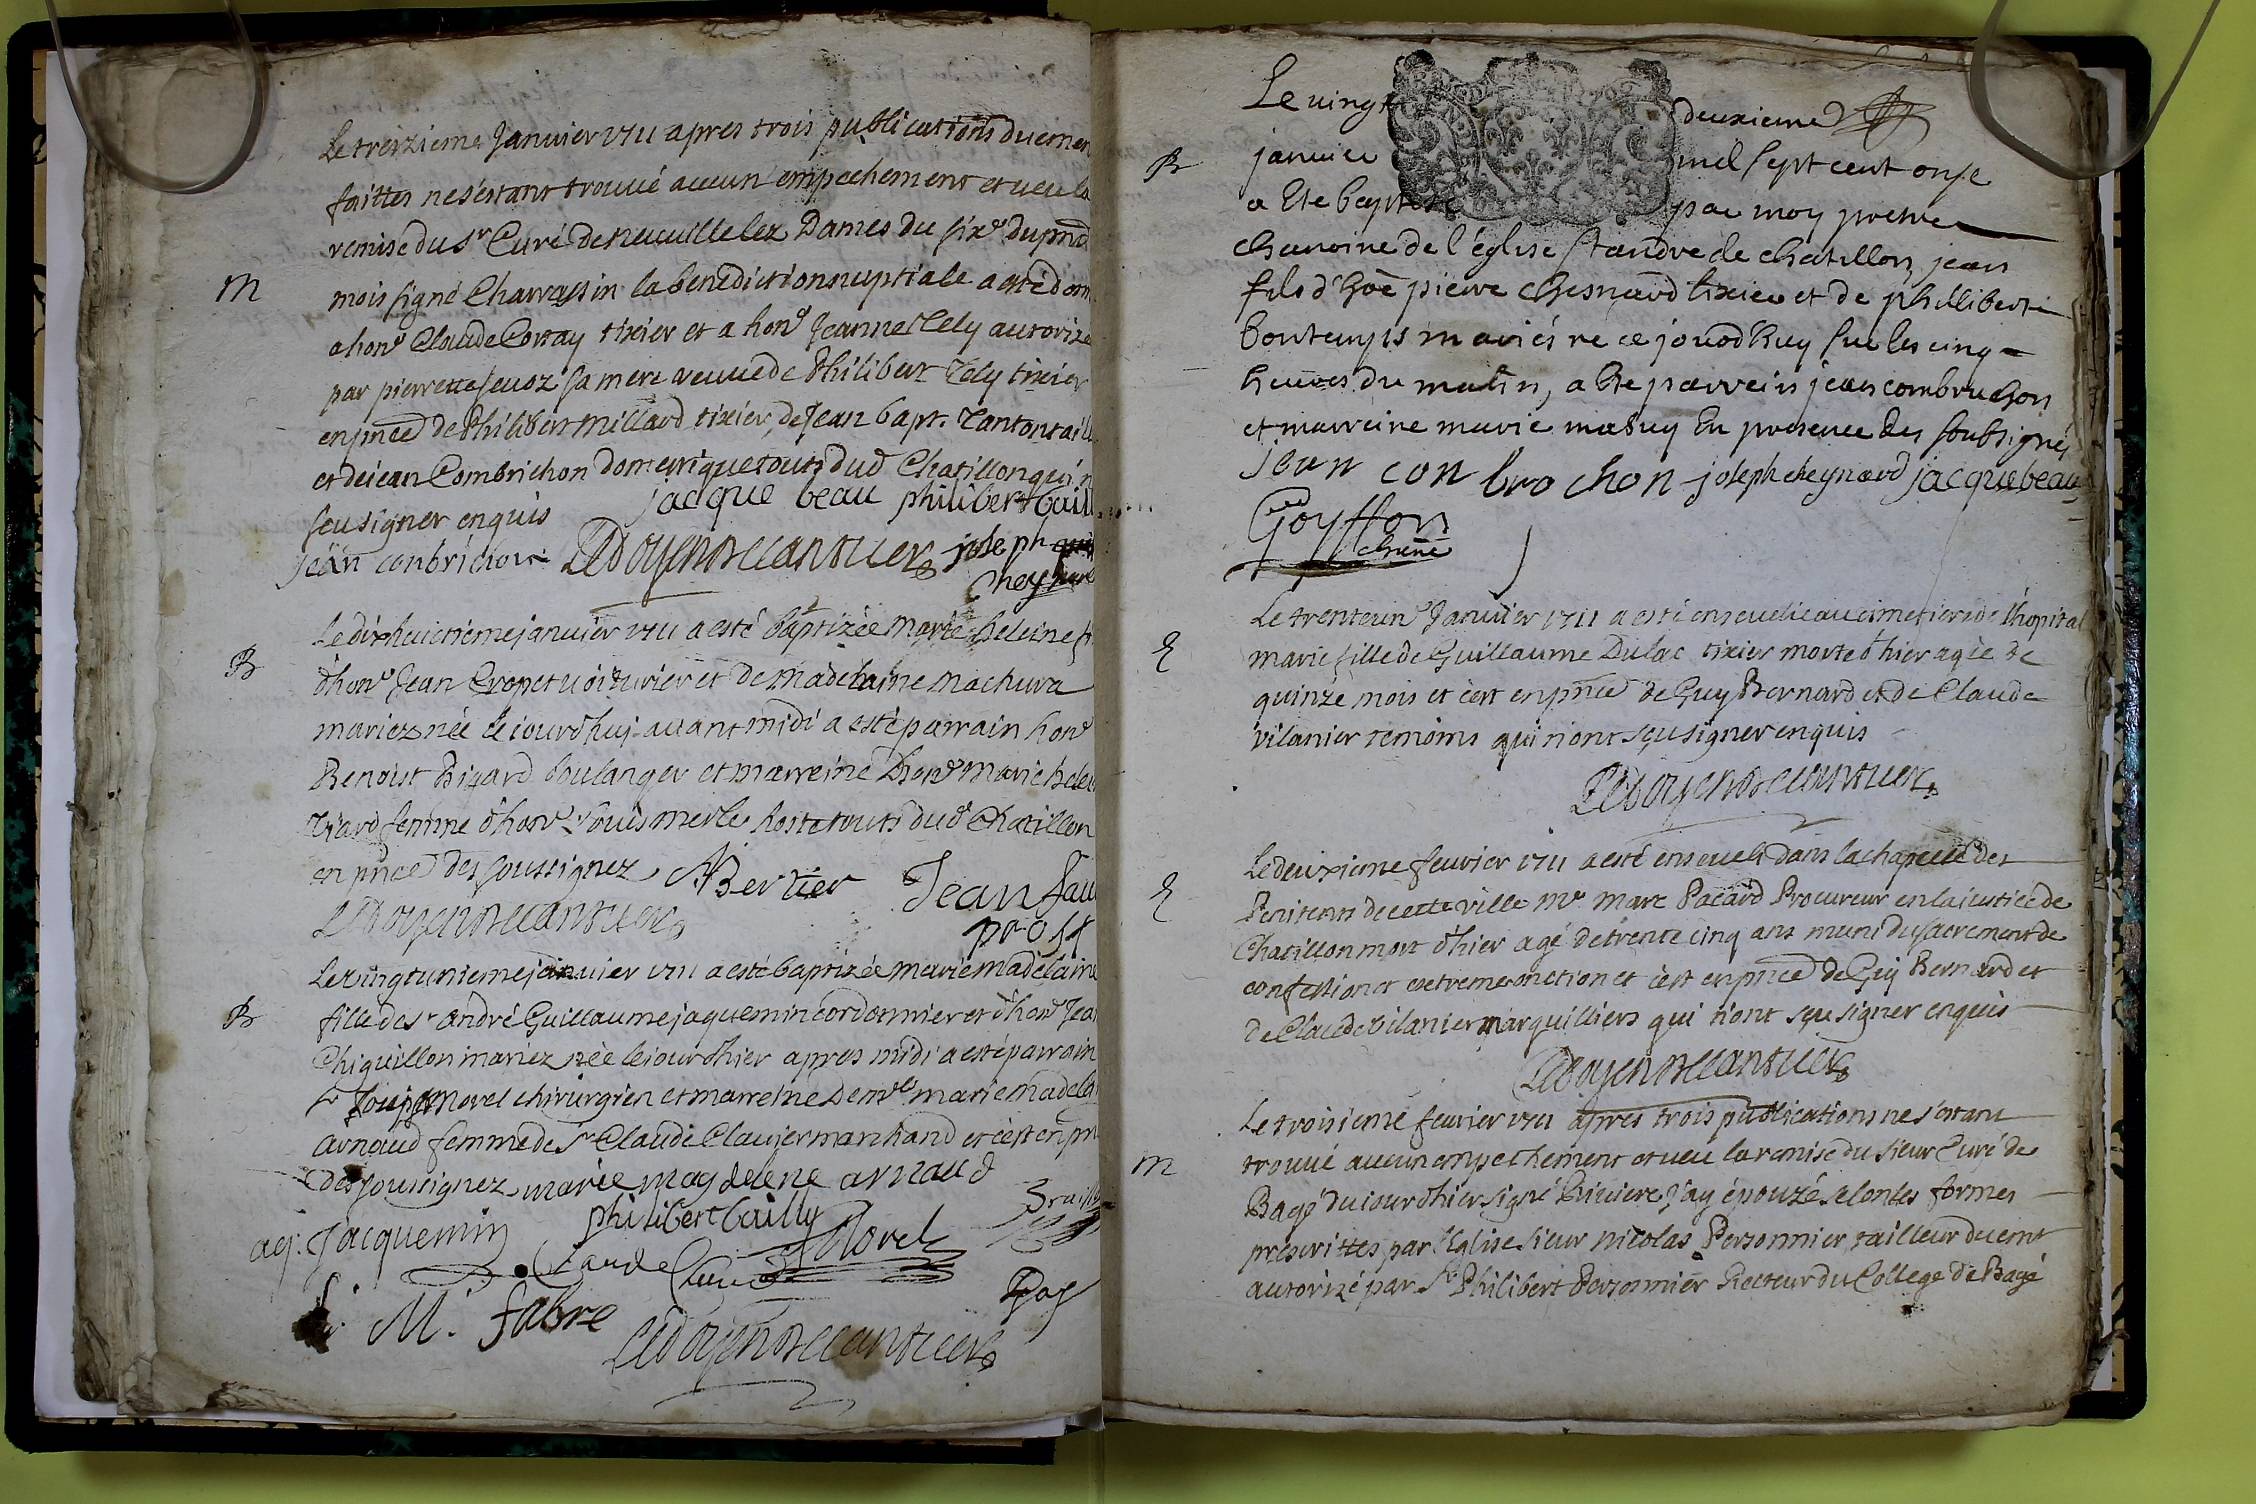 Le treizieme Janvier 1711 apres trois publications duemen
faittes ne s'estant trouvé aucun empechement et veu la
remise du Sr Curé de neuville lez Dames du sixe du pnt
M
mois signé Charrassin la benediction nuptiale a esté don
a hone Claude Corray tixier et a hone Jeanne Tely autorize
par pierrette Jevoz sa mere veuve de Philibert Tely tixier
en pnce de Philibert Millard tixier, de Jean bapt. Tanton taill
et de iean Combrichon domestique touts dud Chatillon qui n
sceu signer enquis
jacque beau philibert baill
jean conbrichon Ledoyen joseph
Chey
Le dixhuictieme janvier 1711 a esté baptizée Marie heleine fi
B
d'hone Jean Cropet voiturier et de Madelaine Machura
mariez née ce iourdhuy avant midi a esté parrain hone
Benoist Rigard boulanger et marreine hone Marie hele
Viard femme d'hone Louis Merle hoste touts dud Chatillon
en pnce des soussignez Bertier Jean fau
Ledoyen prost
Le vingtunieme janvier 1711 a esté baptizée marie madelaine
B
fille de sr André Guillaume jaquemin cordonnier et d'hone Jea
Chiquillon mariez née le iour d'hier apres midi a esté parrain
sr Morel chirurgien et marreine Demlle marie Madela
Arnaud femme de Sr Claude Clavier marchand et c'est en pn
des soussignez marie magdelene arnaud
philibert bailly
Jacquemin Morel
Claude
M. fabre
Ledoyen
Le vingt deuxieme
B
janvier mil sept cent onze
a ete baptisé par moy pretre
chanoine de l'église St andré de chatillon, jean
fils d'hoe pierre chesnard tixier et de phillibert
bontemps mariés né ce jourd'huy sur les cinq
heures du matin, a ete parrein jean combruchon
et marreine marie mathey En presence des soubsignés
jean con bro chon joseph cheynard jacque beau
Goyffon
chne
Le trenteun Janvier 1711 a esté ensevelie au cimetiere de l'hopital
E
marie fille de Guillaume Dulac tixier morte d'hier agée de
quinze mois et c'est en pnce de Guy Bernard et de Claude
vilanier temoins qui n'ont sçeu signer enquis
Ledoyen
Le deuxieme fevrier 1711 a esté enseveli dans la chapelle des
E
Penitens de cette ville Me Marc Pacard Procureur en la iustice de
Chatillon mort d'hier agé de trente cinq ans muni du sacrement de
confession et extreme onction et c'est en pnce de Guy Bernard et
de Claude Vilanier marguilliers qui n'ont sçeu signer enquis
Ledoyen
Le troisieme fevrier 1711 apres trois publications ne s'estant
M
trouvé aucun empechement et veu la remise du sieur Curé de
Bagé du iour d'hier signé Riviere, j'ay épouzé selon les formes
prescrittes par l'Eglise sieur Nicolas Personnier tailleur duemt
autorizé par Sr Philibert Personnier Recteur du College de Bagé